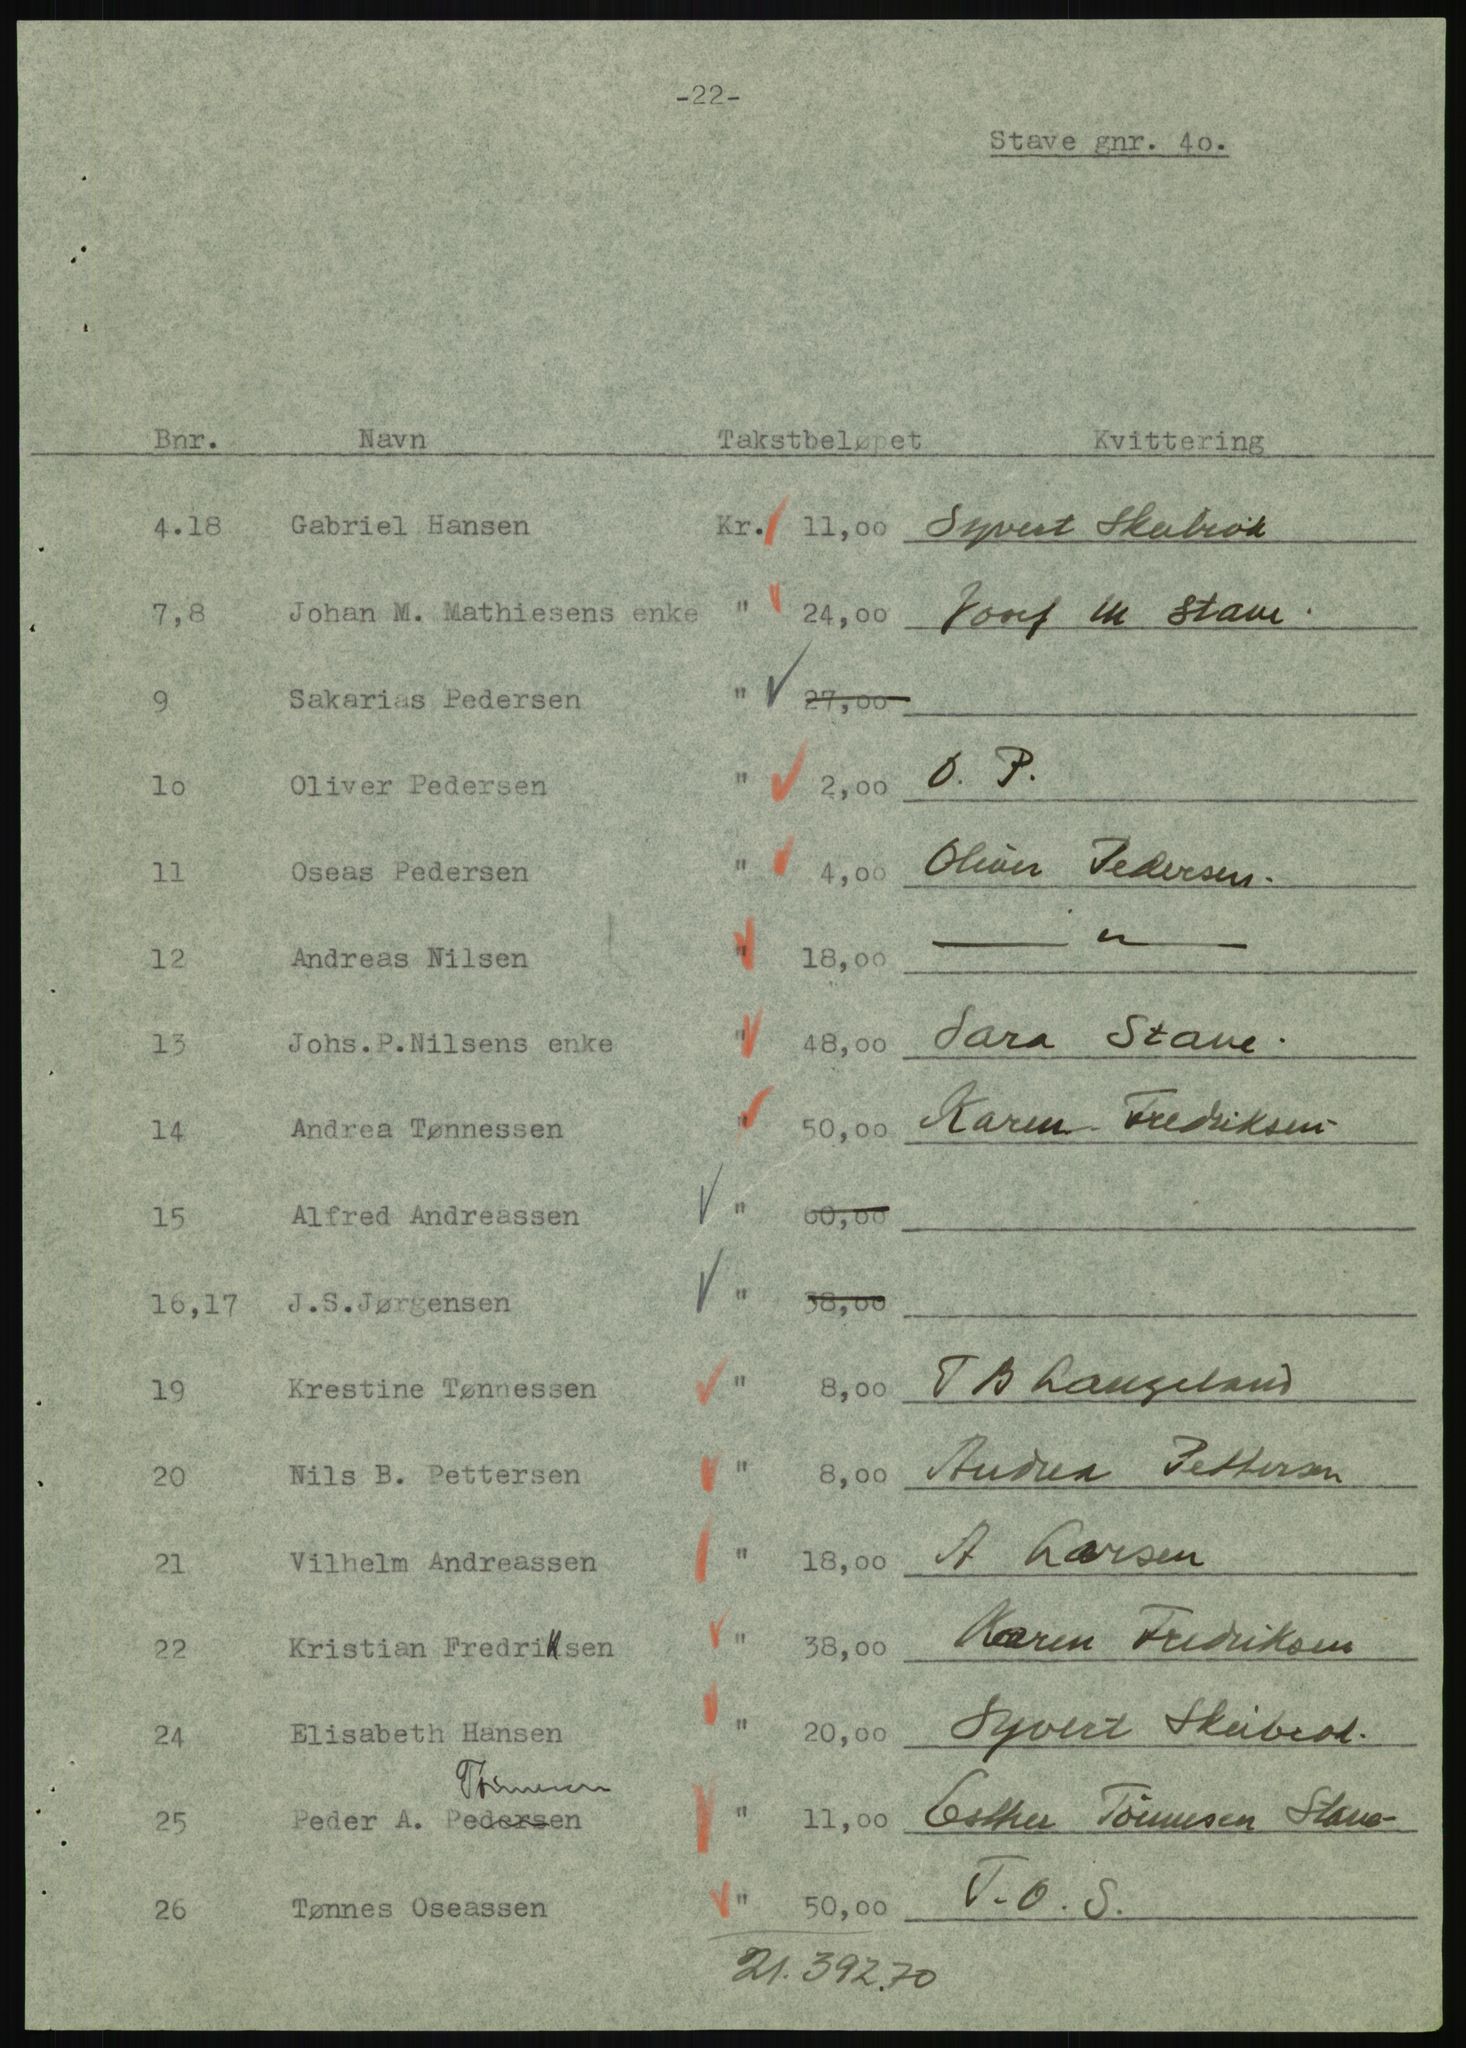 -22-
Stave gnr. 4o.
Bnr. Navn Takstbeløpet Kvittering
4.18 Gabriel Hansen Kr. 11,oo Syvert Skeibrok
7,8 Johan M. Mathiesens enke " 24,oo Josef M Stave.
9 Sakarias Pedersen " 27,oo
1o Oliver Pedersen " 2,oo O. P.
11 Oseas Pedersen " 4,oo Oliver Pedersen.
12 Andreas Nilsen " 18,oo — " —
13 Johs.P.Nilsens enke " 48,oo Sara Stave.
14 Andrea Tønnessen " 50,oo Karen Fredriksen
15 Alfred Andreassen " 60,oo
16,17 J.S.Jørgensen " 38,oo
19 Krestine Tønnessen " 8,oo T B Langeland
20 Nils B. Pettersen " 8,oo Andrea Pettersen
21 Vilhelm Andreassen " 18,oo A Larsen
22 Kristian Fredriksen " 38,oo Karen Fredriksen
24 Elisabeth Hansen " 20,oo Syvert Skeibrok.
25 Peder A. Pedersen " 11,oo Esther Tönnesen Stave
26 Tønnes Oseassen " 50,oo T. O. S.
21.392.70